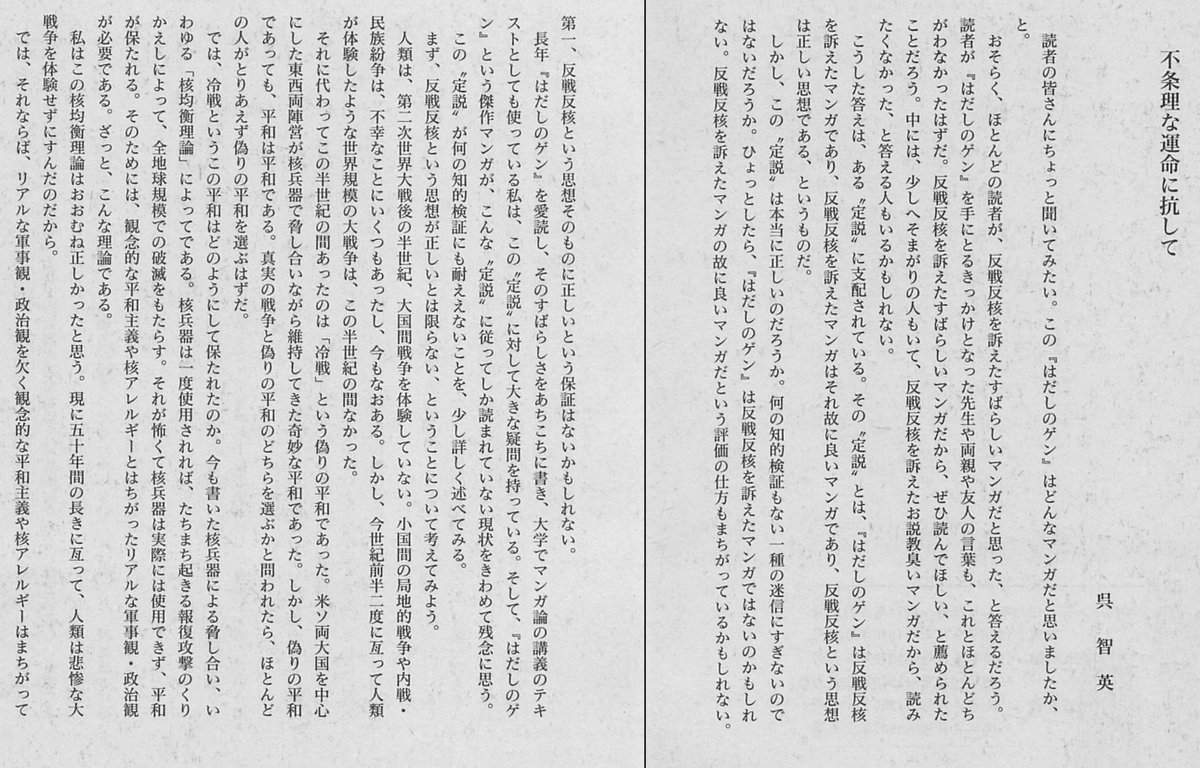 不条理な運命に抗して
呉 智英
読者の皆さんにちょっと聞いてみたい。この『はだしのゲン』はどんなマンガだと思いましたか、
と。
おそらく、ほとんどの読者が、反戦反核を訴えたすばらしいマンガだと思った、と答えるだろう。
読者が『はだしのゲン』を手にとるきっかけとなった先生や両親や友人の言葉も、これとほとんどち
がわなかったはずだ。反戦反核を訴えたすばらしいマンガだから、ぜひ読んでほしい、と薦められた
ことだろう。中には、少しへそまがりの人もいて、反戦反核を訴えたお説教臭いマンガだから、読み
たくなかった、と答える人もいるかもしれない。
こうした答えは、ある〝定説〟に支配されている。その〝定説〟とは、『はだしのゲン』は反戦反核
を訴えたマンガであり、反戦反核を訴えたマンガはそれ故に良いマンガであり、反戦反核という思想
は正しい思想である、というものだ。
しかし、この〝定説〟は本当に正しいのだろうか。何の知的検証もない一種の迷信にすぎないので
はないだろうか。ひょっとしたら、『はだしのゲン』は反戦反核を訴えたマンガではないのかもしれ
ない。反戦反核を訴えたマンガの故に良いマンガだという評価の仕方もまちがっているかもしれない。
第一、反戦反核という思想そのものに正しいという保証はないかもしれない。
長年『はだしのゲン』を愛読し、そのすばらしさをあちこちに書き、大学でマンガ論の講義のテキ
ストとしても使っている私は、この〝定説〟に対して大きな疑問を持っている。そして、『はだしのゲ
ン』という傑作マンガが、こんな〝定説〟に従ってしか読まれていない現状をきわめて残念に思う。
この〝定説〟が何の知的検証にも耐ええないことを、少し詳しく述べてみる。
まず、反戦反核という思想が正しいとは限らない、ということについて考えてみよう。
人類は、第二次世界大戦後の半世紀、大国間戦争を体験していない。小国間の局地的戦争や内戦・
民族紛争は、不幸なことにいくつもあったし、今もなおある。しかし、今世紀前半二度に亙って人類
が体験したような世界規模の大戦争は、この半世紀の間なかった。
それに代わってこの半世紀の間あったのは「冷戦」という偽りの平和であった。米ソ両大国を中心
にした東西両陣営が核兵器で脅し合いながら維持してきた奇妙な平和であった。しかし、偽りの平和
であっても、平和は平和である。真実の戦争と偽りの平和のどちらを選ぶかと問われたら、ほとんど
の人がとりあえず偽りの平和を選ぶはずだ。
では、冷戦というこの平和はどのようにして保たれたのか。今も書いた核兵器による脅し合い、い
わゆる「核均衡理論」によってである。核兵器は一度使用されれば、たちまち起きる報復攻撃のくり
かえしによって、全地球規模での破滅をもたらす。それが怖くて核兵器は実際には使用できず、平和
が保たれる。そのためには、観念的な平和主義や核アレルギーとはちがったリアルな軍事観・政治観
が必要である。ざっと、こんな理論である。
私はこの核均衡理論はおおむね正しかったと思う。現に五十年間の長きに亙って、人類は悲惨な大
戦争を体験せずにすんだのだから。
では、それならば、リアルな軍事観・政治観を欠く観念的な平和主義や核アレルギーはまちがって